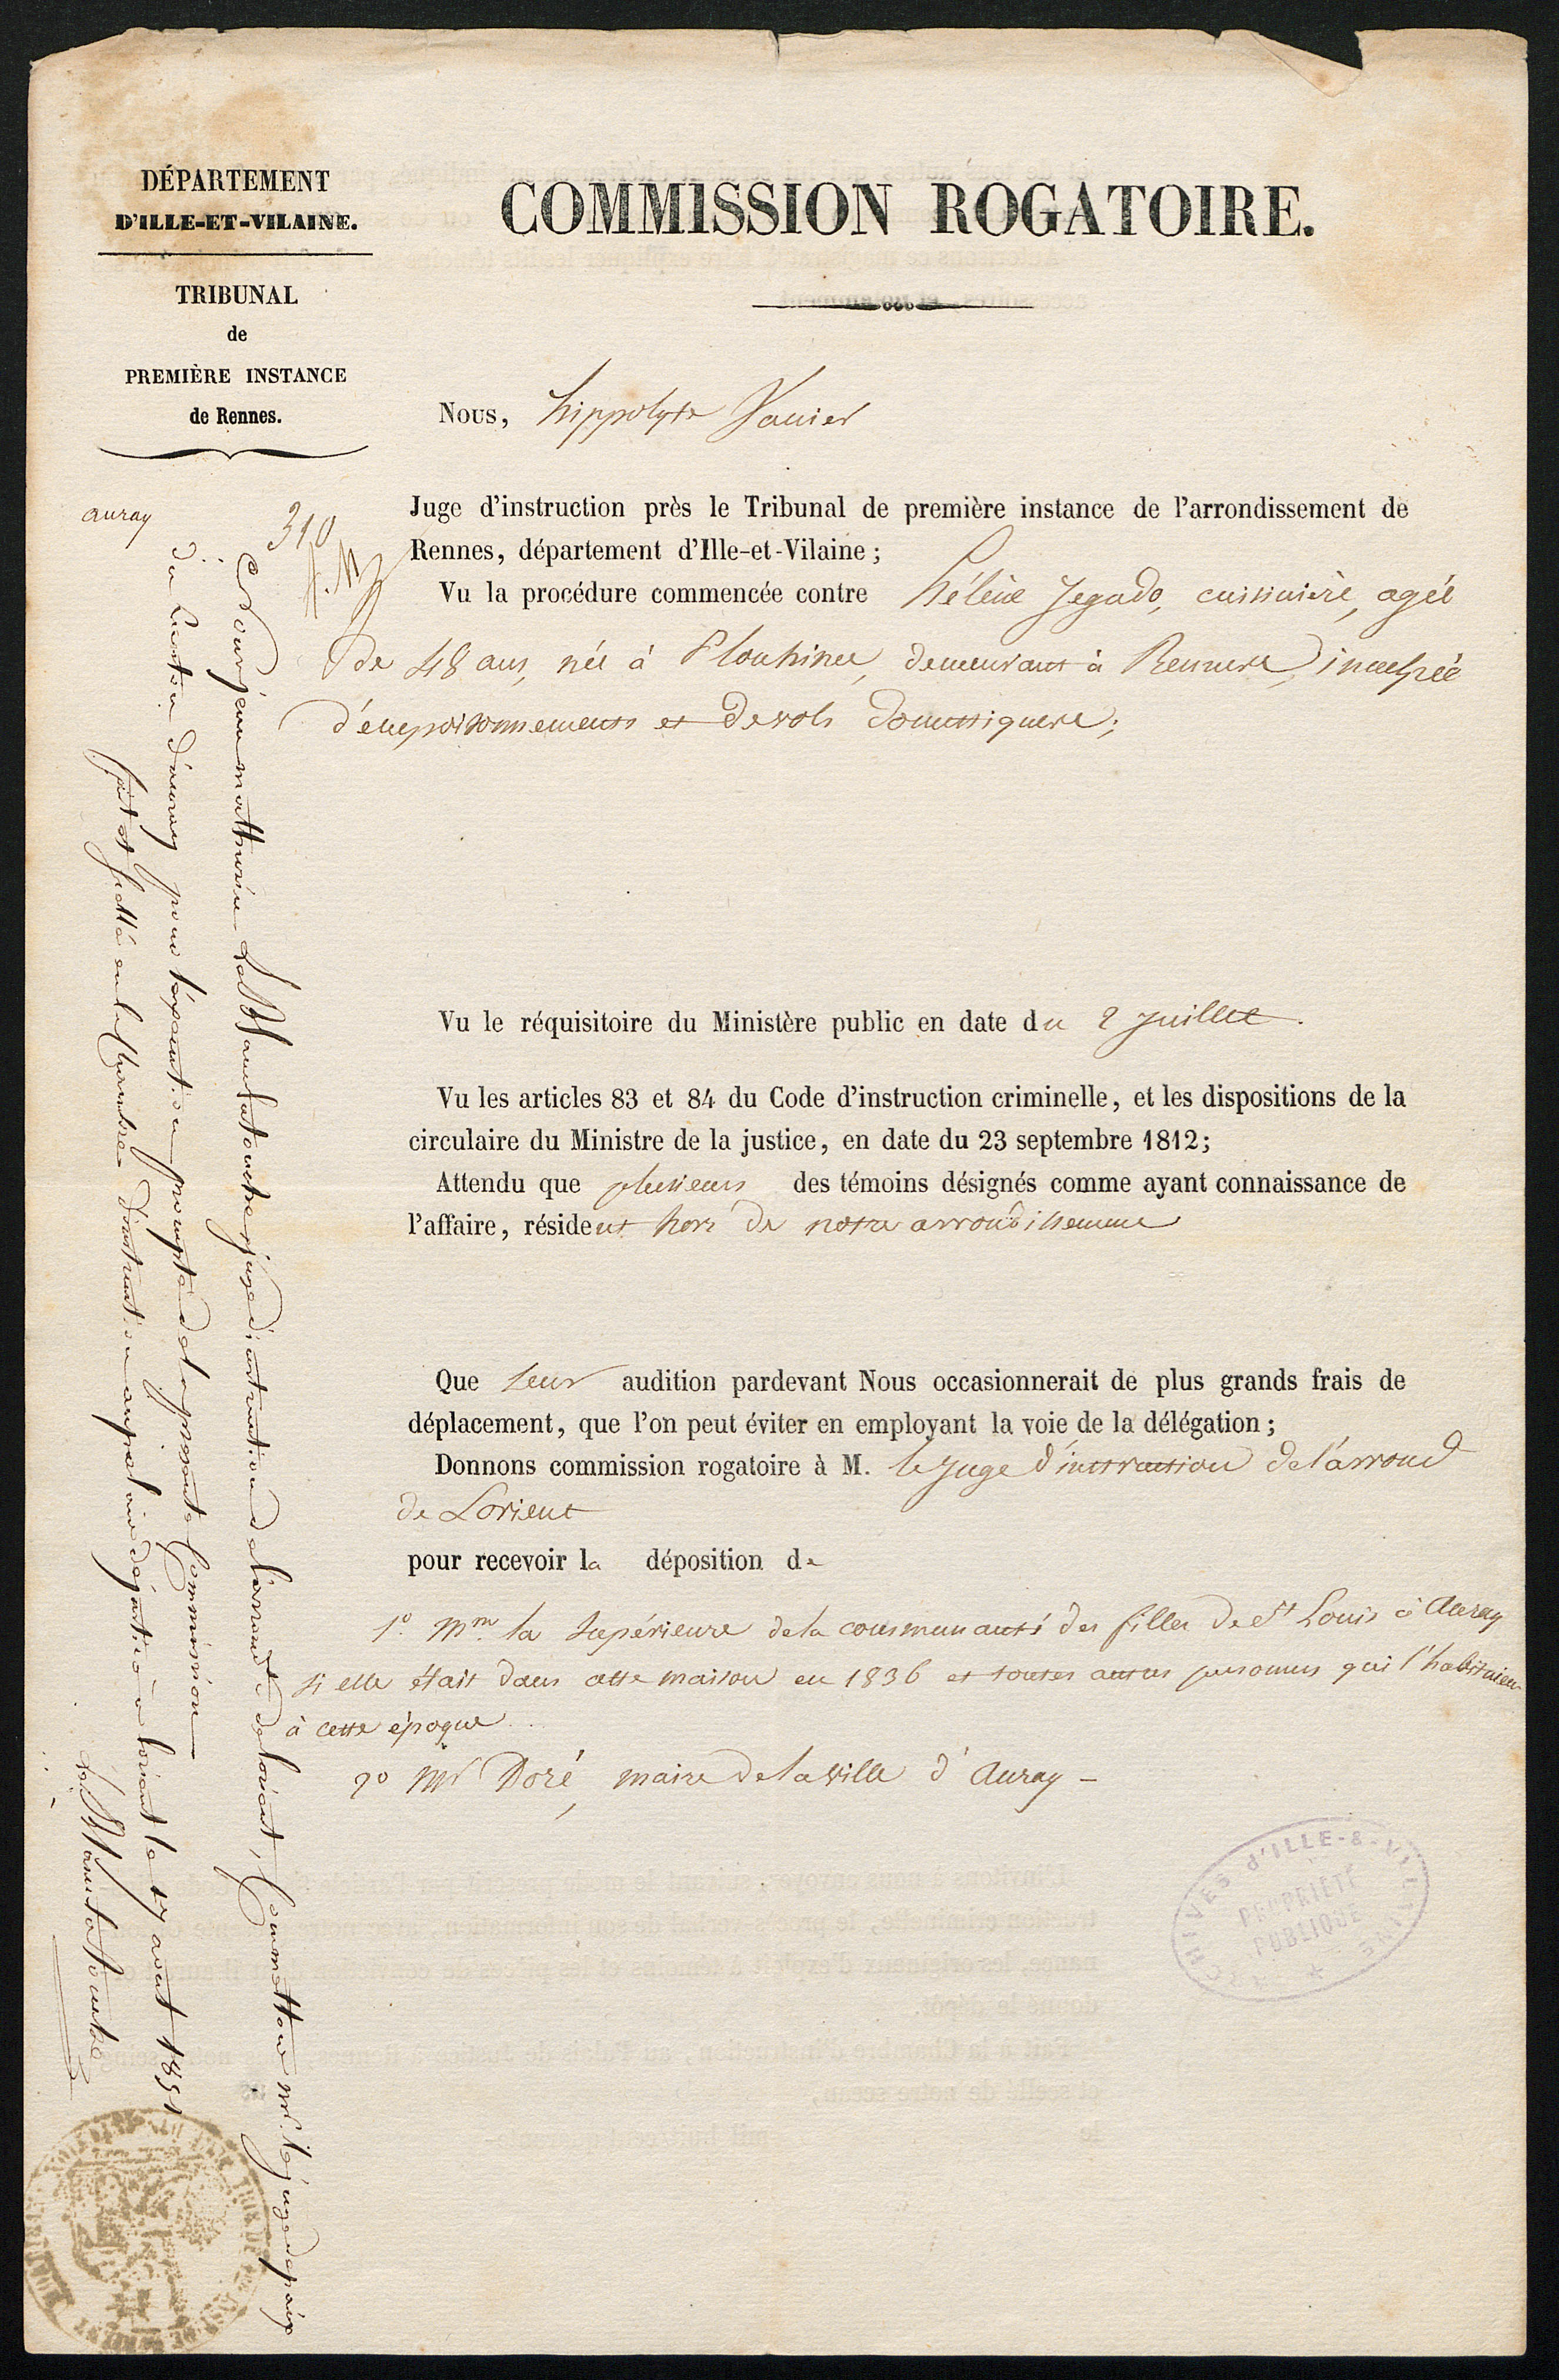 DÉPARTEMENT
D'ILLE-ET-VILAINE.
TRIBUNAL
de
PREMIÈRE INSTANCE
de Rennes.
COMMISSION ROGATOIRE.
Nous, hippolyte Vanier
auray
310
Juge d'instruction près le Tribunal de première instance de l'arrondissement de
Rennes, département d'Ille-et-Vilaine;
Vu la procédure commencée contre hélène Jegado, cuisinière, agée
de 48 ans, née à Plouhinec, demeurant à Rennes, inculpée
d'empoisonnements et de vols domestiques;
Vu le réquisitoire du Ministère public en date du 2 juillet.
Vu les articles 83 et 84 du Code d'instruction criminelle, et les dispositions de la
circulaire du Ministre de la justice, en date du 23 septembre 1812;
Attendu que plusieurs des témoins désignés comme ayant connaissance de
l'affaire, résident hors de notre arrondissement
Que leur audition pardevant Nous occasionnerait de plus grands frais de
déplacement, que l'on peut éviter en employant la voie de la délégation;
Donnons commission rogatoire à M. le juge d'instruction de l'arrond
de Lorient
pour recevoir la déposition de
1° Mme la supérieure de la communauté des filles de St Louis à Auray
si elle était dans cette maison en 1836 et toutes autres personnes qui l'habitaient
à cette époque
2° Mr Doré, maire de la ville d'Auray -
mathurin juge d'instruction de l'arrond de lorient, Commettons mr. le juge de paix
du Canton d'auray pour l'exécution prompte de la présente Commission
fait et scellé en la Chambre d'instruction au palais de justice à lorient le 17 aout 1851
ARCHIVES d'ILLE-&-VILAINE
PROPRIÉTÉ
PUBLIQUE